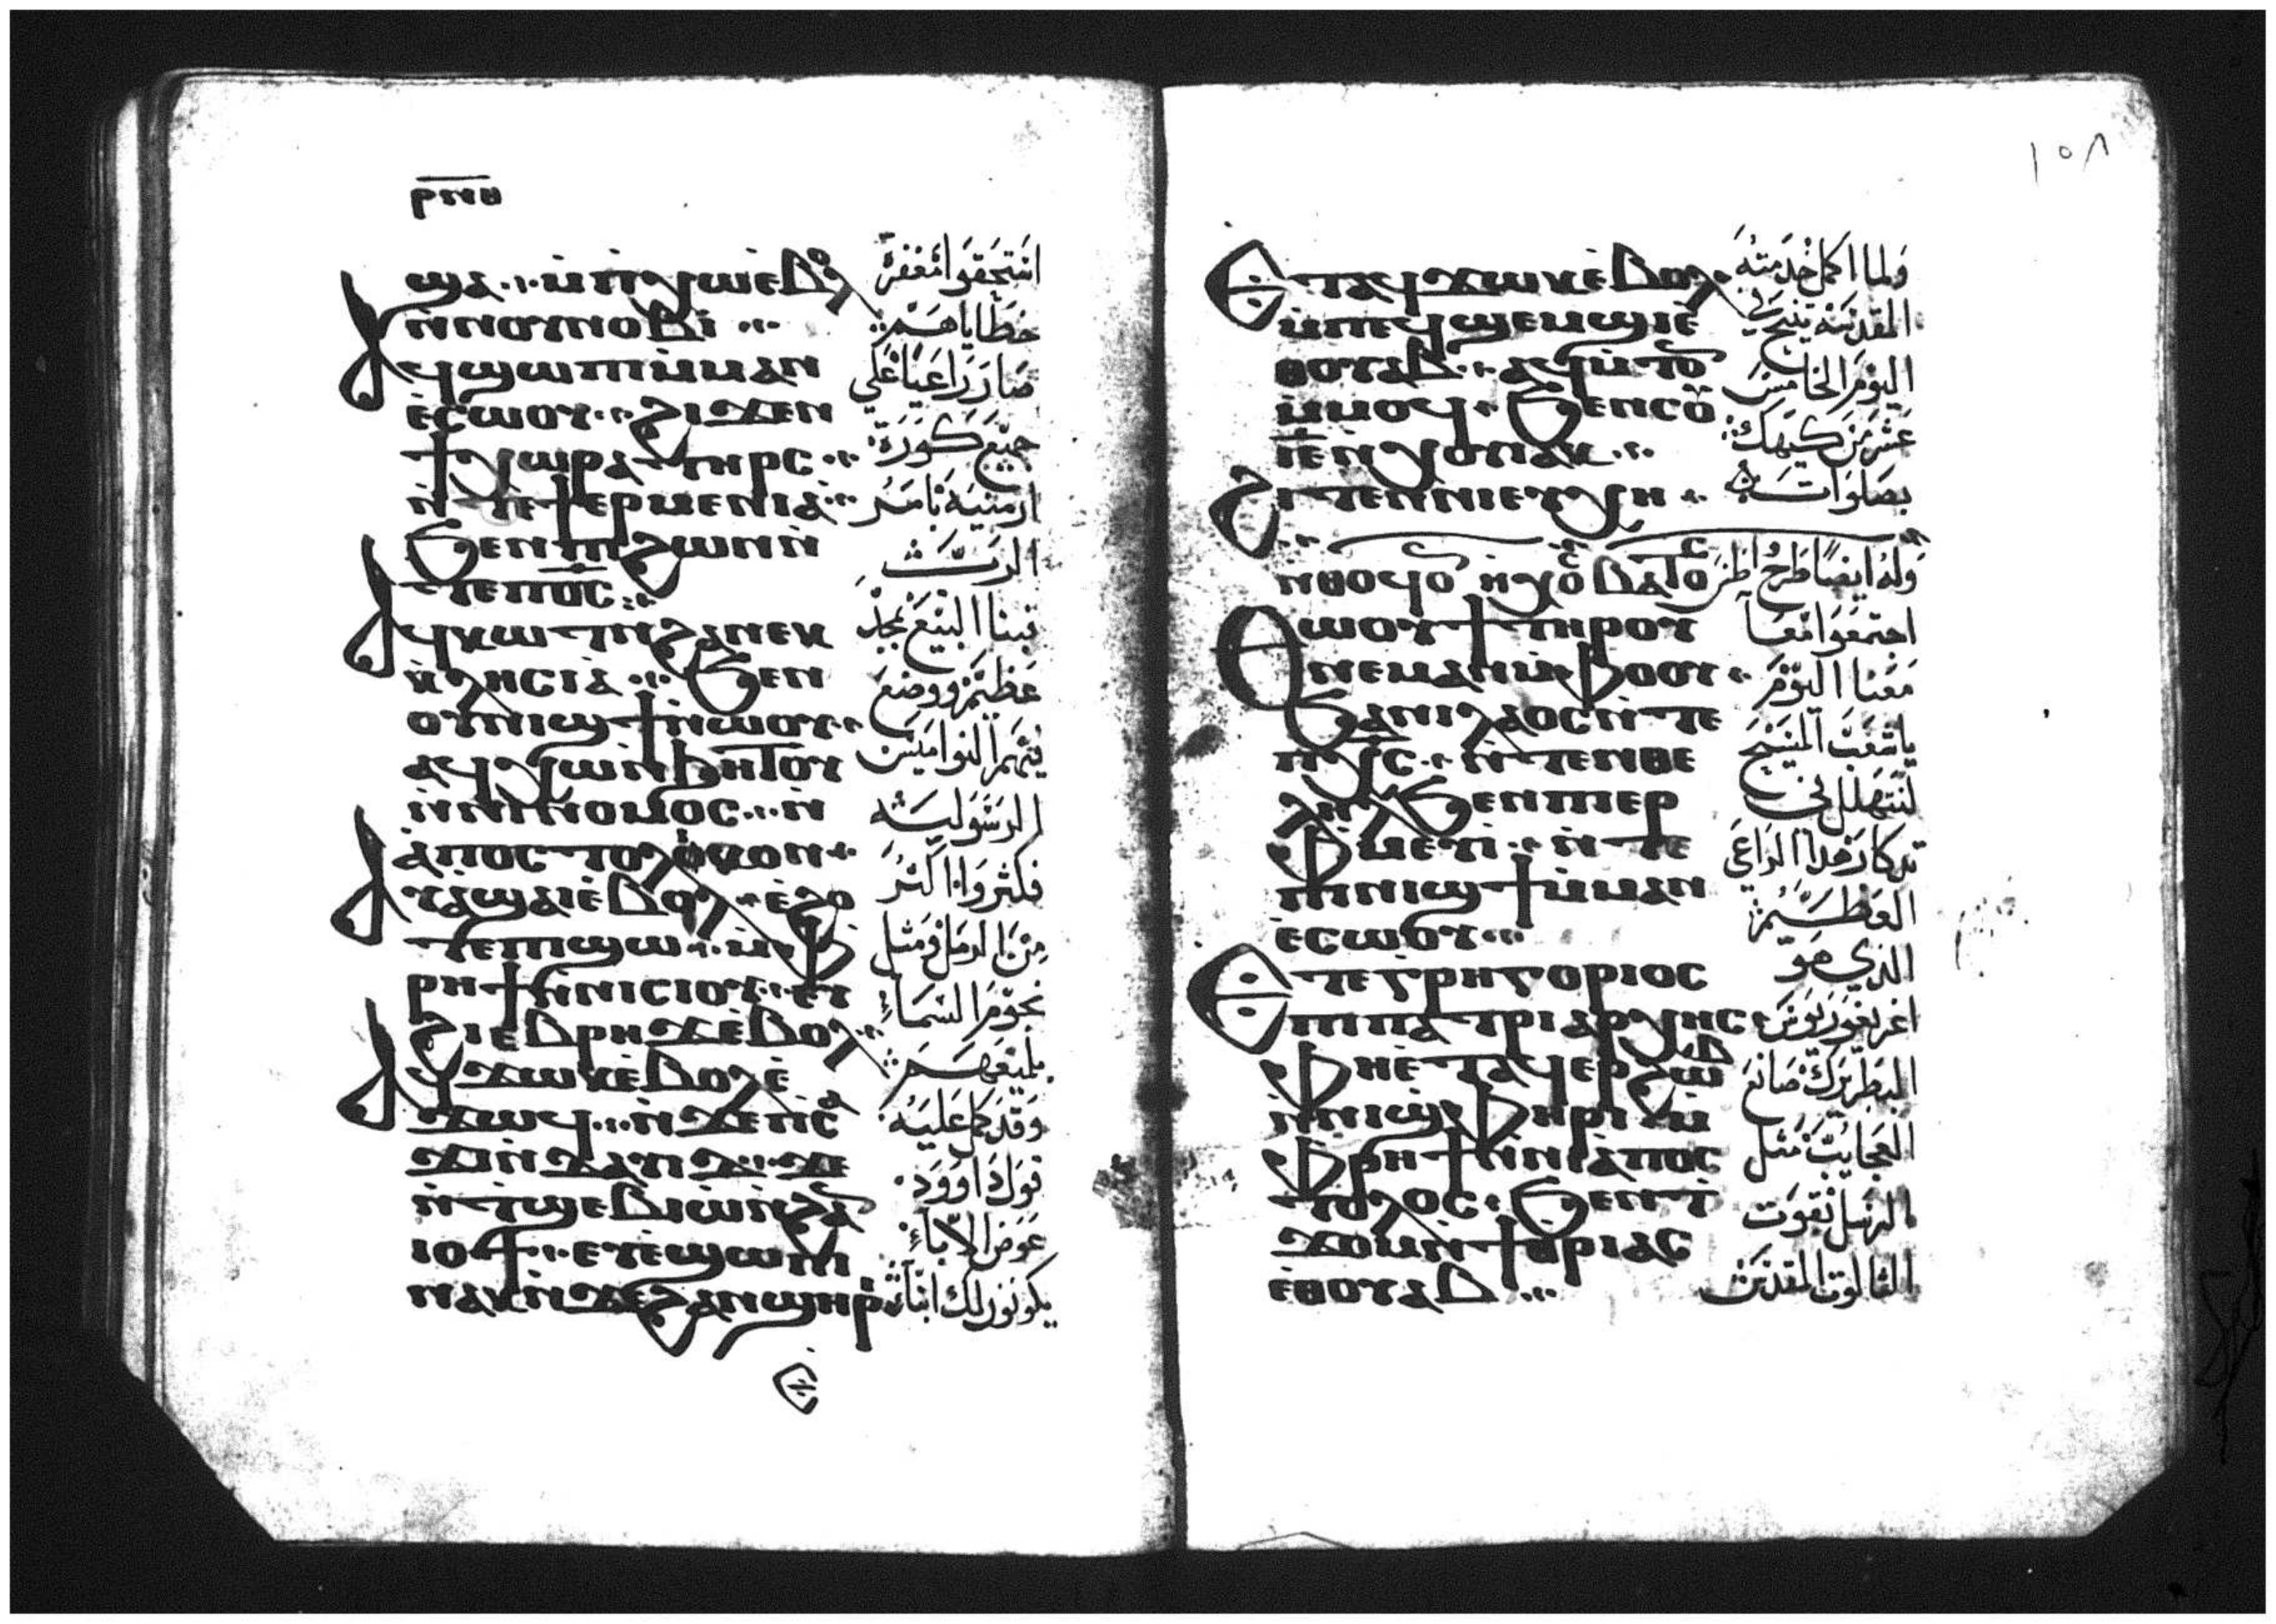 ⲣⲛⲏ
ϣⲁ ⲙ̀ⲡⲭⲱⲉ̀ⲃⲟⲗ
ⲛ̀ⲛⲟⲩⲛⲟⲃⲓ
ⲁϥϣⲱⲡⲓⲙ̀ⲙⲁⲛ
ⲉ̀ⲥⲱⲟⲩ ϩⲓϫⲉⲛ
ϯⲭⲱⲣⲁ ⲧⲏⲣⲥ
ⲛ̀ⲧⲉϯⲉⲣⲙⲉⲛⲓⲁ̀
ϧⲉⲛⲡϩⲱⲛⲛ̀
ⲧⲉⲡⲟ̅ⲥ̅
ⲁϥⲕⲱⲧⲛ̀ϩⲁⲛⲉⲕ
ⲕ̀ⲗⲏⲥⲓⲁ̀ ϧⲉⲛ
ⲟⲩⲛⲓϣϯⲛ̀ⲱⲟⲩ
ⲁϥⲭⲱⲛ̀ϧⲏⲧⲟⲩ
ⲛ̀ⲛⲓⲛⲟⲙⲟⲥ ⲛ̀
ⲁ̀ⲡⲟⲥⲧⲟⲗⲓⲕⲟⲛ
ⲁⲩⲁ̀ϣⲁⲓⲉ̀ⲃⲟⲗ ⲉ̀ϩⲟ
ⲧⲉⲡϣⲱ ⲙ̀ⲫ
ⲣⲏϯⲛ̀ⲛⲓⲥⲓⲟⲩ ⲉⲩ
ϩⲓⲉⲃⲣⲏϫⲉ̀ⲃⲟⲗ
ⲁϥϫⲱⲕⲉ̀ⲃⲟⲗⲉ̀
ϫⲱϥ ⲛ̀ϫⲉⲡⲥⲁ
ϫⲓⲛ̀ⲇⲁⲩⲓⲇ ϫⲉ
ⲛ̀ⲧϣⲉⲃⲓⲱ̀ⲛ̀ϩⲁⲛ
ⲓⲟϯ ⲉⲩⲉ̀ϣⲱⲡⲓ
ⲛⲁⲕⲛ̀ϫⲉϩⲁⲛϣⲏⲣⲓ
استحقوا مغفرة
خطاياهم
صار راعيا علي
جميع كورة
ارمنيه بامر
الرب
تبنا البيع بمجد
عظيم ووضع
فيهم النواميس
الرسوليه
فكثروا اكثر
من الرمل ومثل
نجوم السماء
بلمعهم
وقد كمل عليه
قول داوود
عوض الاباء
يكونون لك ابنا
١٥٨
ⲉⲧⲁϥϫⲱⲕⲉ̀ⲃⲟⲗ
ⲙ̀ⲡⲉϥϣⲉⲙϣⲓⲉ̀
ⲑⲟⲩⲁⲃ ⲁϥⲙ̀ⲧⲟ
ⲙ̀ⲙⲟϥ ϧⲉⲛⲥⲟⲩ
ⲓ̅ⲉ̅ⲛ̀ⲭⲟⲓⲁⲕ
ϩⲓⲧⲉⲛⲛⲓⲉⲩⲭⲏ
ⲛ̀ⲑⲟϥⲟⲛ ⲏⲭⲟⲥ ⲃⲁⲧⲟⲥ
ⲑⲱⲟⲩϯⲧⲏⲣⲟⲩ
ⲛⲉⲙⲁⲛⲙ̀ⲫⲟⲟⲩ
ϧⲁⲛⲓⲗⲁⲟⲥⲛ̀ⲧⲉ
ⲡⲭ̅ⲥ̅ ⲛ̀ⲧⲉⲛⲑⲉ
ⲗⲏⲗϧⲉⲛⲡⲉⲣ
ⲫⲙⲉⲩⲓ ⲛ̀ⲧⲉ
ⲡⲛⲓϣϯⲙ̀ⲙⲁⲛ
ⲉ̀ⲥⲱⲟⲩ
ⲉⲧⲉⲅⲣⲏⲅⲟⲣⲓⲟⲥ
ⲡⲓⲡⲁⲧⲣⲓⲁⲣⲭⲏⲥ
ⲫⲏⲉ̀ⲧⲁϥⲉⲣϩⲱⲃ
ⲛ̀ⲛⲓϣⲫⲏⲣⲓ ⲙ̀
ⲫⲣⲏϯⲛ̀ⲛⲓⲁ̀ⲡⲟⲥ
ⲧⲟⲗⲟⲥ ϧⲉⲛⲧ
ϫⲟⲙⲛ̀ϯⲧⲣⲓⲁⲥ
ⲉ̀ⲑⲟⲩⲁⲃ
ولما اكمل خدمته
المقدسه تنيح في
اليوم الخامس
عشر من كيهك
بصلوات
وله ايضا طرح
اجتمعوا معا
معنا اليوم
يا شعب المسيح
لنتهلل في
تدكار هدا الراعي
العظيم
الذي هو
اغريغوريوس
البطريرك صانع
العجايب مثل
الرسل بقوت
الثالوت المقدس